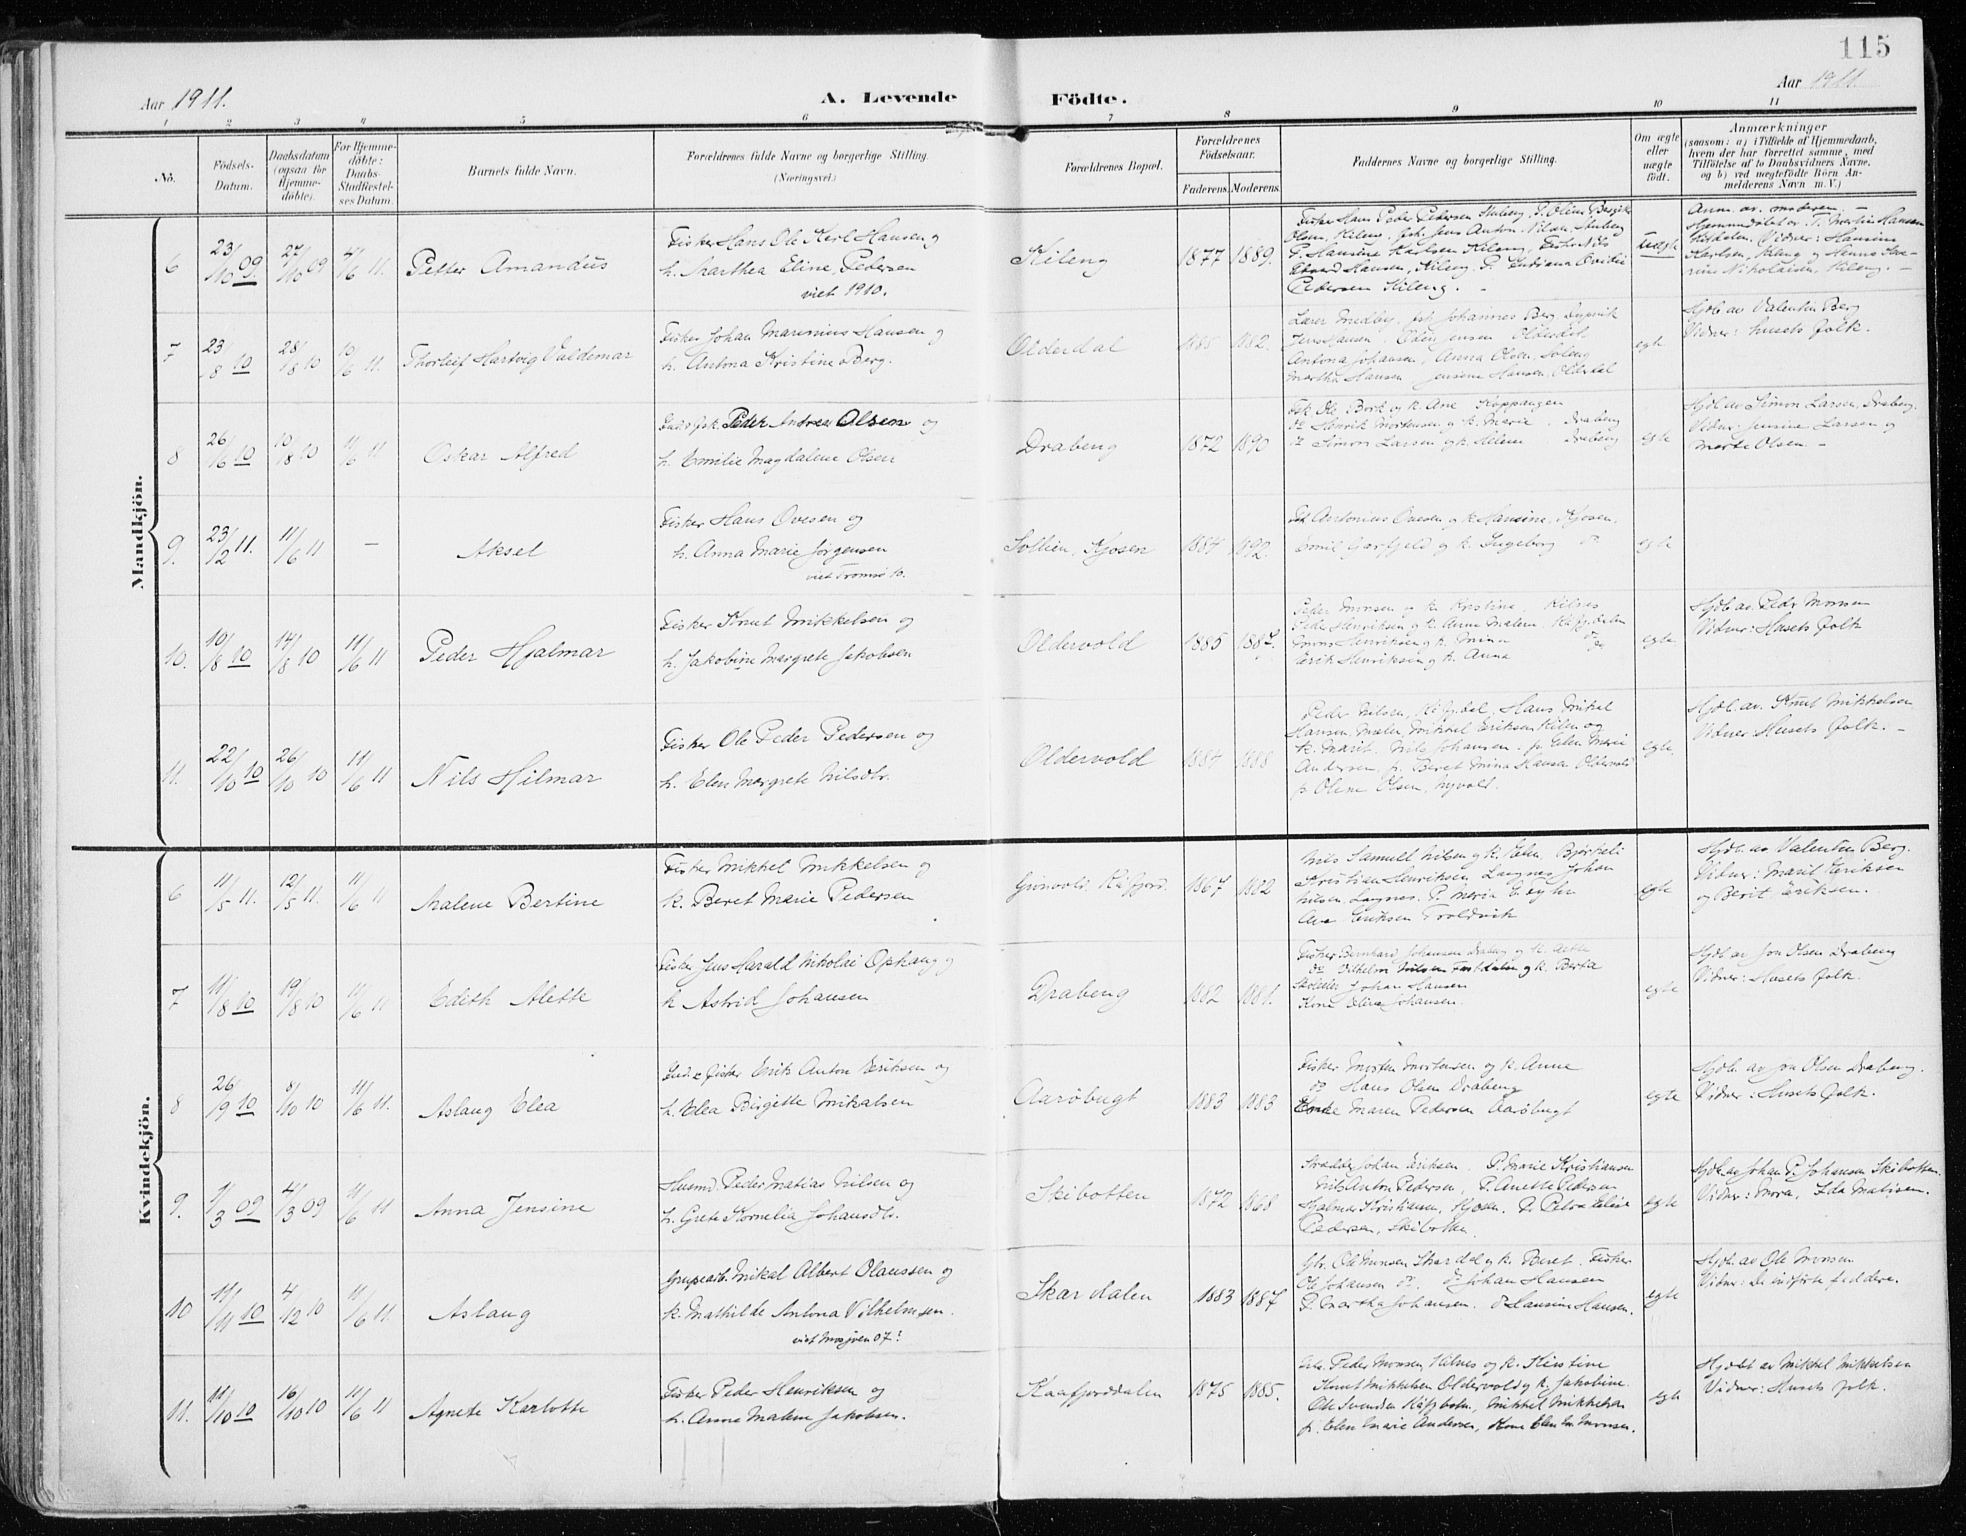 115
Aar 1911.
A. Levende Födte.
Aar 1911.
1 2 3 4 5 6 7 8 9 10 11
No.
Födsels-Datum.
Daabsdatum (ogsaa for Hjemme-döbte).
For Hjemme-döbte: Daabs-Stadfæstel-ses Datum.
Barnets fulde Navn.
Forældrenes fulde Navne og borgerlige Stilling.
(Næringsvei.)
Forældrenes Bopæl.
Forældrenes Födselsaar.
Faderens. Moderens.
Faddernes Navne og borgerlige Stilling.
Om ægte eller uægte födt.
Anmærkninger
(saasom: a) i Tilfælde af Hjemmedaab, hvem der har forrettet samme, med Tilföielse af to Daabsvidners Navne, og b) ved uægtefödte Börn An-melderens Navn m. V.)
Mandkjön.
6 23/10 09. 27/10 09 4/6 11. Petter Amandus
Fisker Hans Ole Karl Hansen og
h. Marthea Eline Pedersen
viet 1910.
Kileng 1877 1889.
Fisker Hans Peder Pedersen
Pedersen Kileng.
uægte
Anm. av moderen.
7 23/8 10 28/8 10 10/6 11. Thorleif Hartvig Valdemar
Fisker Johan Marinius Hansen og
h. Antona Kristine Berg.
Olderdal 1885 1882.
Jens Hansen
Antona Johansen, Anna Olsen
Martha Hansen Jensine Hansen, Olderdal
egte
Hjdb. av Valentin Berg
Vidner: husets folk.
8 26/6 10 10/8 10 11/6 11 Oskar Alfred
Peder Andreas Olsen og
h. Emilie Magdalene Olsen
Draberg 1872 1890
Henrik Mortensen og k. Marie Draberg
Simon Larsen og k. Helene Draberg
egte
Hjdb. av Simon Larsen, Draberg.
Vidner: Jensine Larsen og
Merte Olsen
9. 23/2 11. 11/6 11 – Aksel
Fisker Hans Ovesen og
h. Anna Marie Jørgensen
viet Tromsø
Sollien, Kjosen 1884 1892.
Antonius Ovesen og k. Hansine, Kjosen.
Emil Garfjeld og k. Ingeborg do
egte
10. 10/8 10 14/8 10 11/6 11 Peder Hjalmar
Fisker Knut Mikkelsen og
h. Jakobine Margrete Jakobsen
Oldervold 1885 1887.
Peder Monsen og k. Kristine, Kilnes
Peder Henriksen og k. Anne Malene, Kåfjorddalen
Mons Henriksen og k. Mina do
Erik Henriksen og k. Anna do
egte
Hjdb. av. Peder Monsen
Vidner: Husets folk
11. 22/10 10 26/10 10 11/6 11 Nils Hilmar
Fisker Ole Peder Pedersen og
h. Elen Margrete Nilsdtr.
Oldervold 1884 1888
Peder Nilsen, Kåfjdal, Hans Mikal
Hansen
k. Marit. Nils Johansen. p. Elen Marie
Andersen, p. Beret Mina Hansen Oldervold
p. Oline Olsen, Nyvold.
egte.
Hjdb. av. Knut Mikkelsen
Vidner: Husets folk. –
Kvindekjön.
6 11/5 11. 12/5 11. 11/6 11 Malene Bertine
Fisker Mikkel Mikkelsen og
k. Beret Marie Pedersen
Grönvold. Kåfjord. 1867 1882
Nils Samuel Nilsen og k. Elen, Bjørkeli
Kristian Henriksen Langnes Johan
Nilsen, Langnes.
Ane Eriksen Troldvik
egte
Hjdb. av Valentin Berg.
Vidner: Marit Eriksen
og Berit Eriksen.
7 11/8 10 19/8 10 11/6 11 Edith Alette
Fisker Jens Harald Nikolai Ophaug og
h Astrid Johansen
Draberg 1882 1881.
Fisker Bernhard Johansen Draberg og k. Alette
do Vilhelm Nilsen og k. Berta
Johan Hansen
Kone Elina Johansen.
egte
Hjdb. av Jon Olsen Draberg
Vidner: Husets folk.
8 26/9 10 8/10 10 11/6 11. Aslaug Elea
Fisker Erik Anton Eriksen og
h. Elea Birgitte Mikalsen
Aarøbugt 1883 1883
Fisker Morten Mortensen og k. Anne
do Hans Olsen Draberg
Enke Maren Pedersen Aarøbugt
egte
Hjdb. av Jon Olsen Draberg.
Vidner: Husets folk.
9. 1/3 09 4/3 09 11/6 11 Anna Jensine
Husmd. Peder Matias Nilsen og
h. Grete Kornelia Johansdtr.
Skibotten 1872 1868
Johan Eriksen. P. Marie Kristiansen
Nils Anton Pedersen, P. Anette Pedersen
Halmar Kristiansen, Kjosen.
Pedersen, Skibotten.
egte
Hjdb. av Johan P. Johansen Skibotten.
Vidner: Mora, Ida Matisen.
10 11/11 10 4/12 10 11/6 11. Aslaug
Grupearb. Mikal Albert Olaussen og
k. Mathilde Antona Vilhelmsen.
viet Mosjøen 07?
Skardalen 1883 1887
Gbr. Ole Monsen Skardal og k. Beret. Fisker
Ole Johansen do. do Johan Hansen
P. Martha Johansen. do Hansine Hansen.
egte
Hjdb av Ole Monsen
Vidner: De innførte faddere.
11. 11/10 10 16/10 10 11/6 11 Agnete Karlotte
Fisker Peder Henriksen og
h. Anna Malene Jakobsen.
Kaafjorddalen 1875 1885.
Gbr. Peder Monsen, Kilnes og k. Kirstine
Knut Mikkelsen Oldervold og k. Jakobine
Ole Svendsen Kåfjbotn, Mikkel Mikkelsen
p. Elen Marie Andersen, Kone Elen Monsen.
egte
Hjdbt av Mikkel Mikkelsen
Vidner: Husets folk.